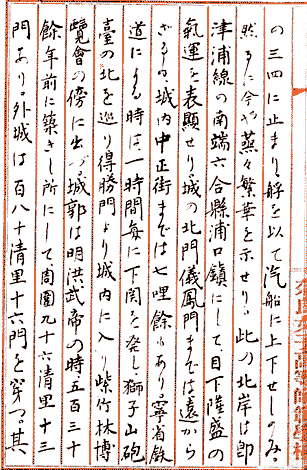 の三四に止まり艀を以て汽船に上下せしのみ。
然るに今や蒸々繁華を示せり。此の北岸は即
津浦線の南端六合縣浦口鎮にして目下隆盛の
氣運を表顯せり。城の北門儀鳳門までは遠から
ざるも城内中正街までは七哩餘もあり寧省鉄
道による時は一時間毎に下関を発し獅子山砲
臺の北を巡り得勝門より城内に入り紫竹林博
覽會の傍に出づ。城郭は明洪武帝の時、五百三十
餘年前に築きし所にして周圍九十六清里十三
門あり。外城は百八十清里十六門を穿つ。其